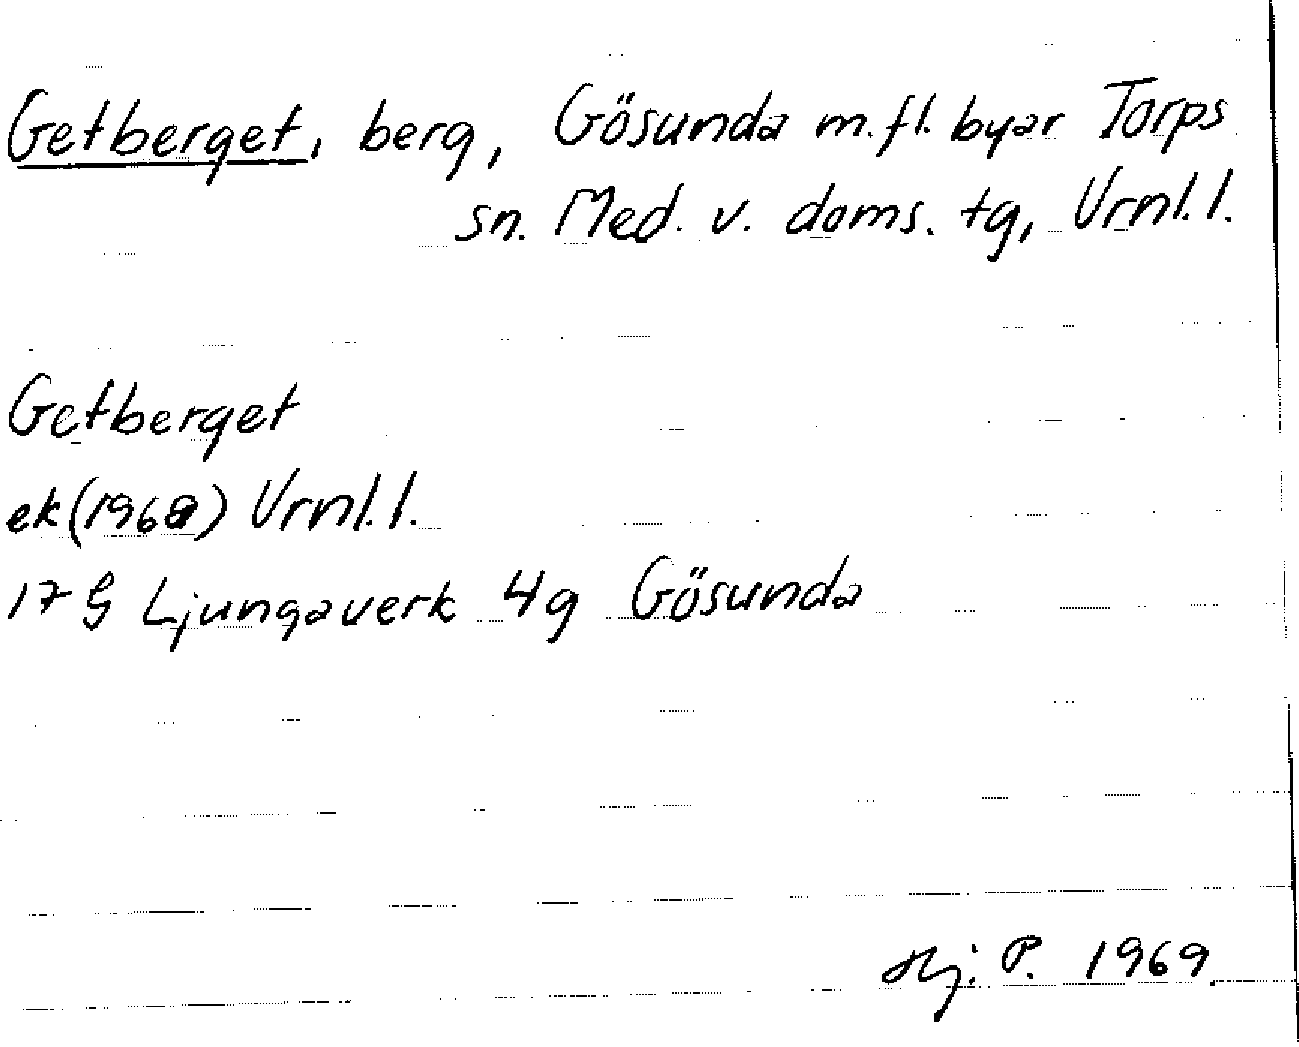 Getberget, berg, Gösunda m.fl. byar Torps
sn. Med. v. doms. tg, Vrnl.l.
Getberget
ek(1968) Vrnl.l.
17 G Ljungaverk 4g Gösunda
Hj. P. 1969